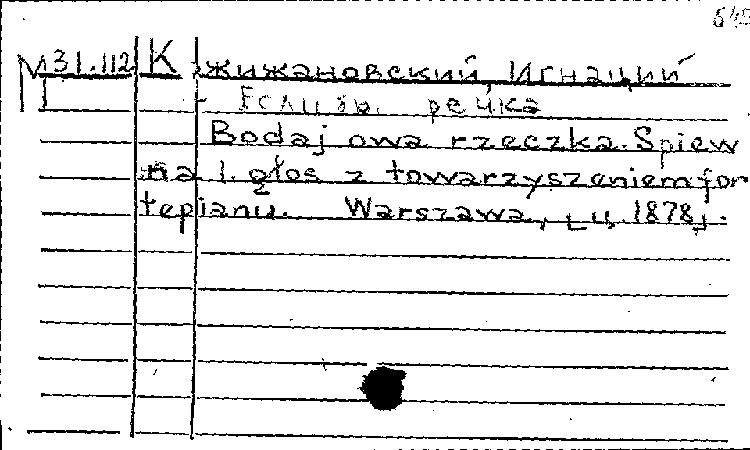 645
М 31.112 Кжижановский, Игнаций
Если бы речка
Bodaj owa rzeczka. Spiew
na 1. głos z towarzyszeniem for
tepianu. Warszawa, [ц. 1878].